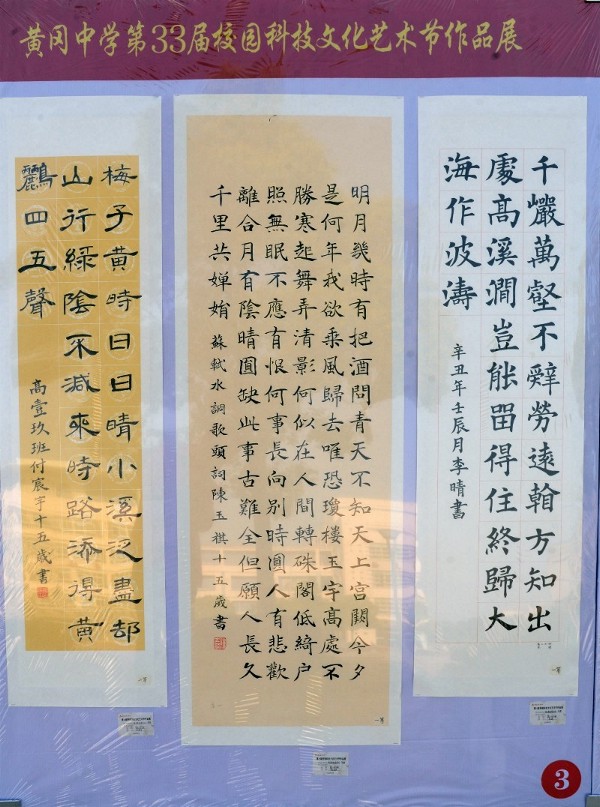 黄冈中学第33届校园科技文化艺术节作品展
梅子黄時日日晴小溪泛盡卻
山行綠陰不減來時路添得黄
鸝四五聲
高壹玖班付宸宇十五歲書
明月幾時有把酒問青天不知天上宮闕今夕
是何年我欲乘風歸去唯恐瓊樓玉宇高處不
勝寒起舞弄清影何似在人間轉硃閣低綺户
照無眠不應有恨何事長向别時圓人有悲歡
離合月有陰晴圓缺此事古難全但願人長久
千里共嬋娟 蘇軾水調歌頭詞陳玉祺十五歲書
千巖萬壑不辤勞遠翰方知出
處高溪澗豈能畱得住終歸大
海作波濤
辛丑年壬辰月李晴書
3